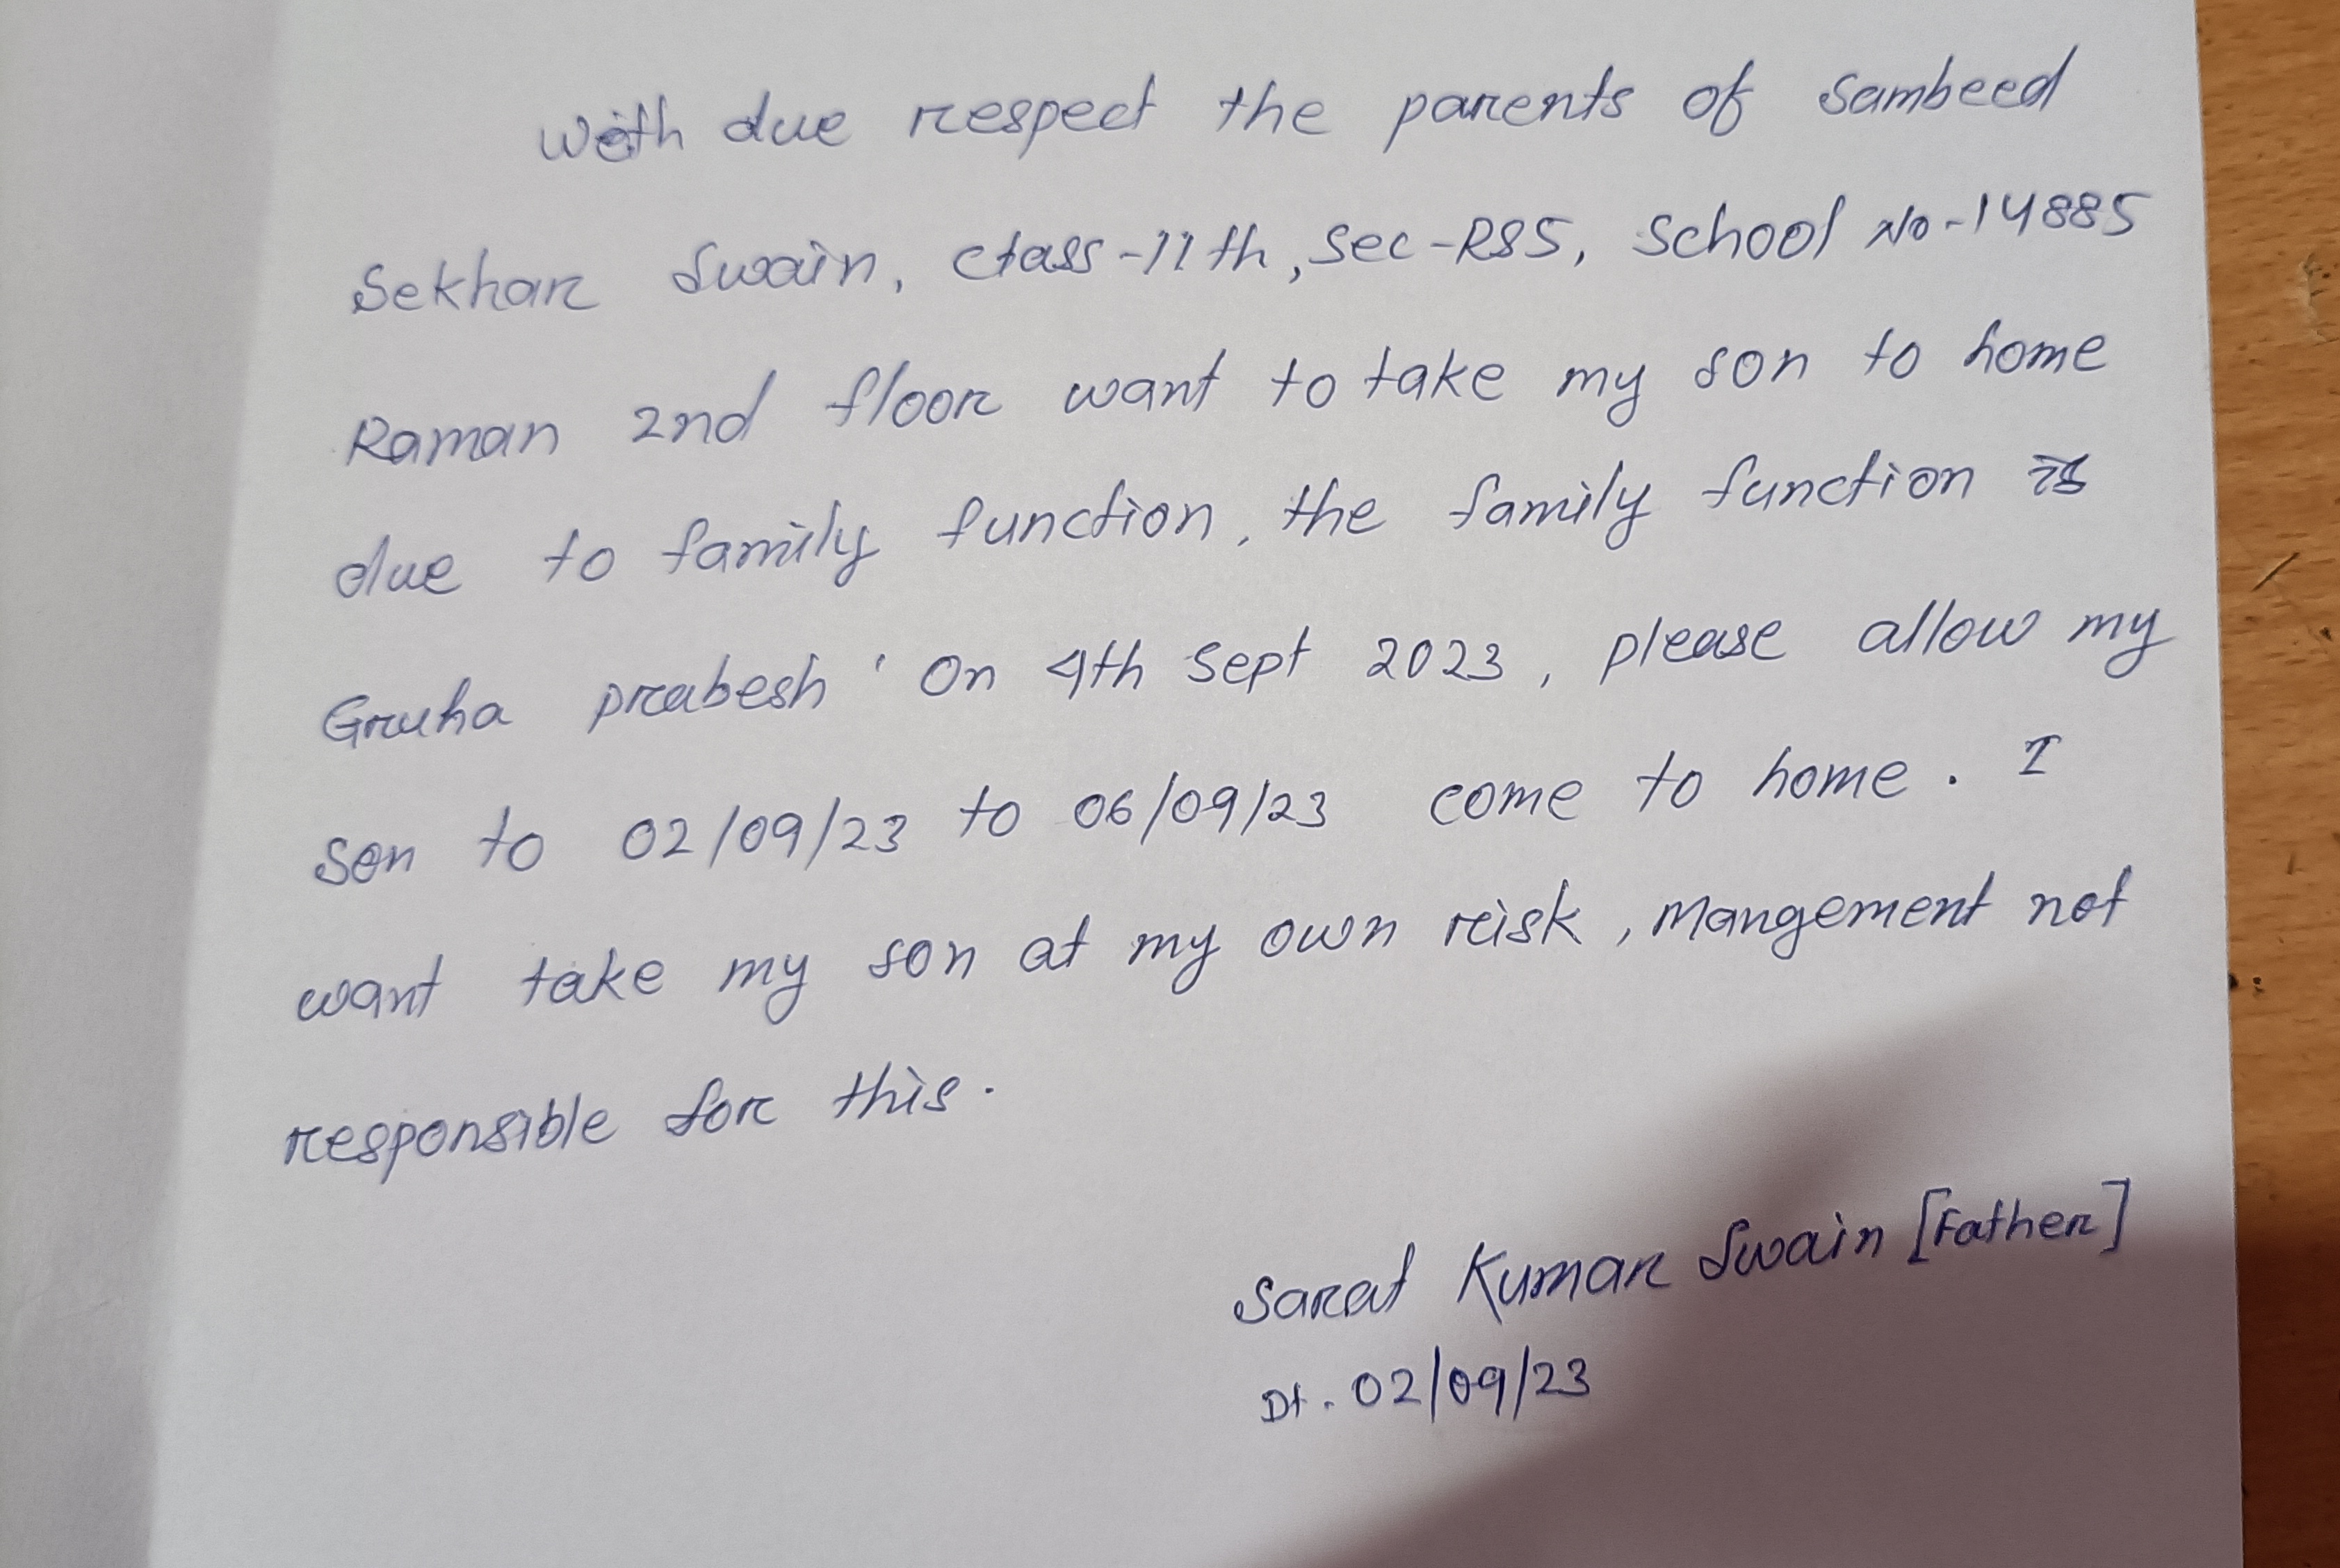 With due respect the parents of Sambeed
Sekhar Swain, Class-11th, Sec-RS5, School No-14885
Raman 2nd floor want to take my son to home
due to family function, the family function is
Gruha prabesh ' On 4th Sept 2023, please allow my
son to 02/09/23 to 06/09/23 come to home. I
want take my son at my own risk, Mangement not
responsible for this.
Sarat Kumar Swain [Father]
Dt. 02/09/23